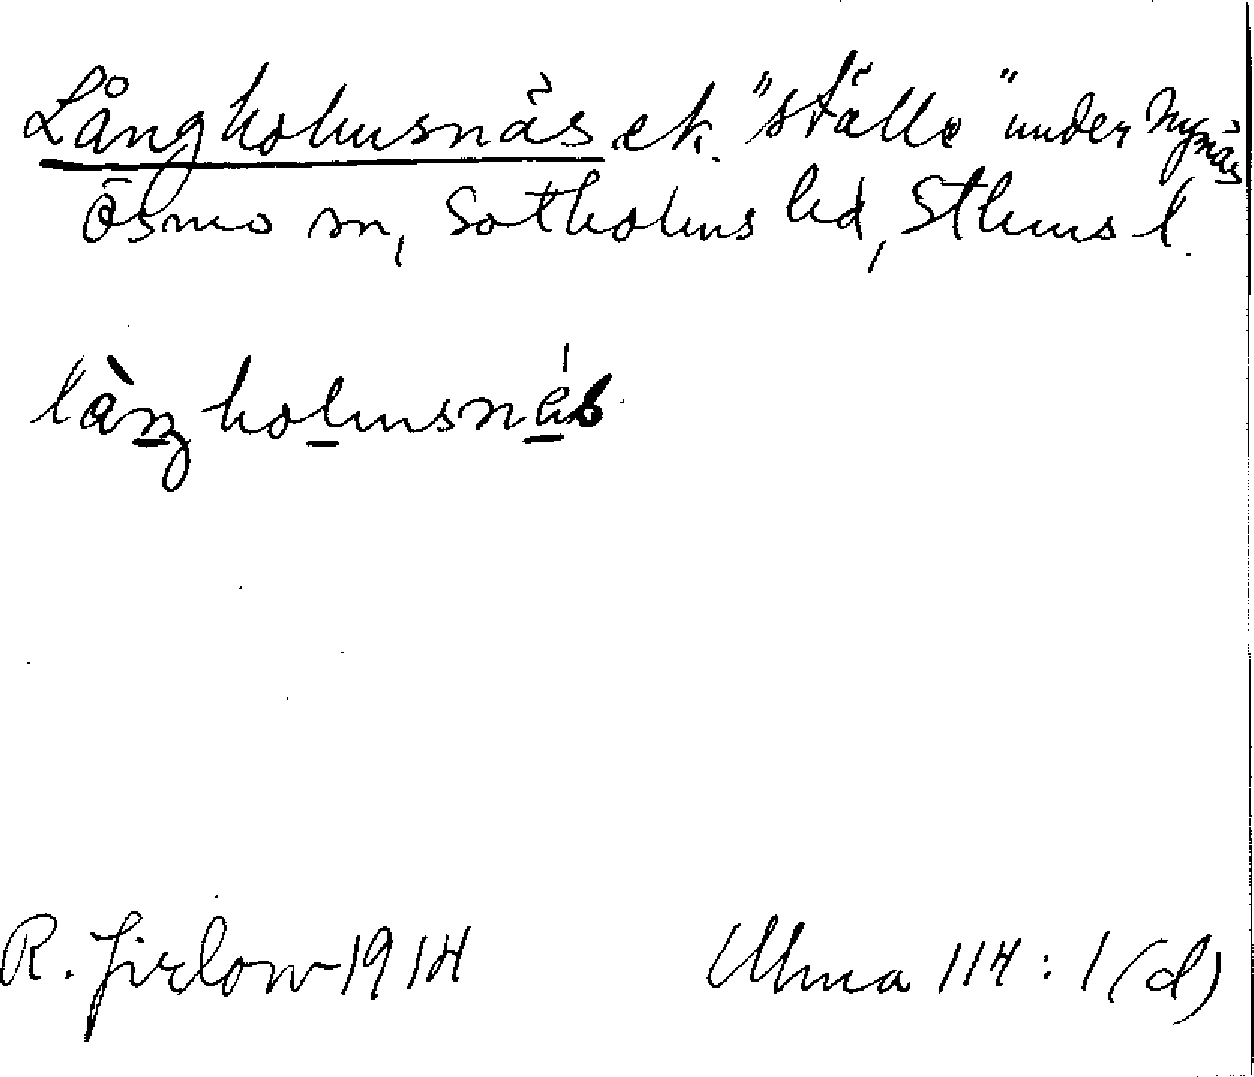 Långholmsnäs ek. "ställe" under Nynäs
Ösmo sn, Sotholms hd, Sthms l.
làŋholmsnä́s
R. Jirlow 1914
Ulma 114:1(d)